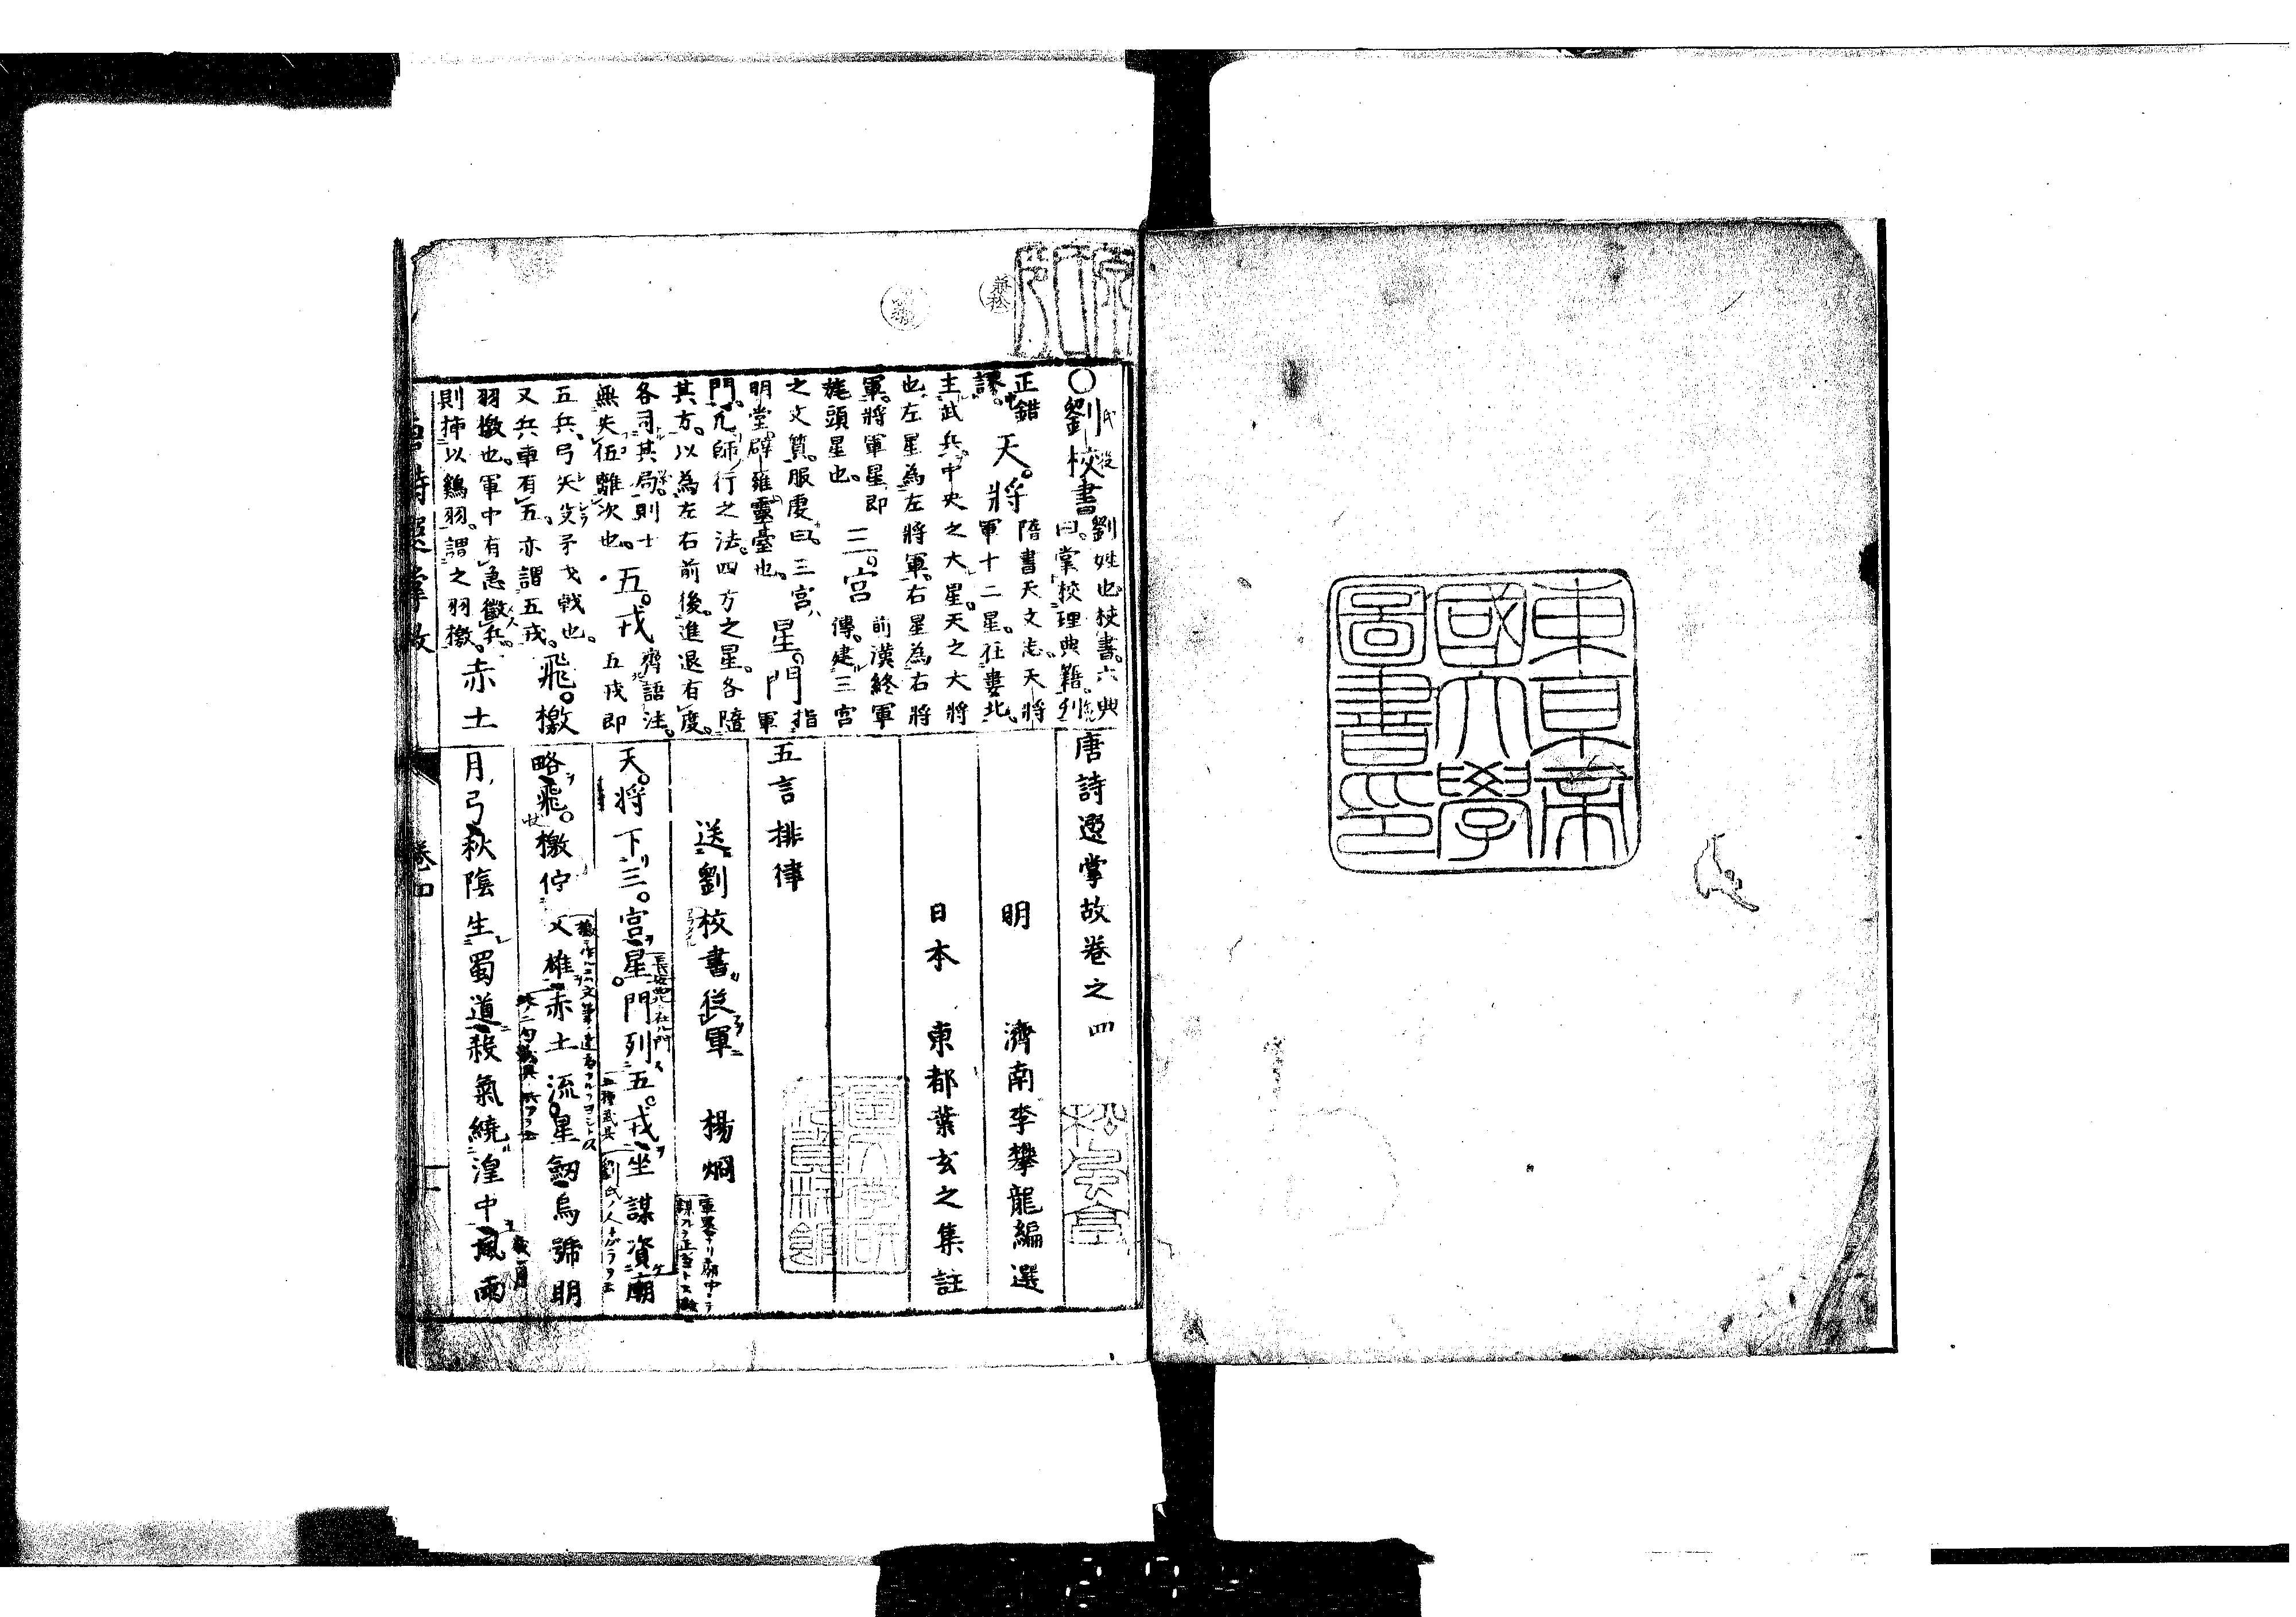 東京帝
國大學
圖書印
唐詩選掌故卷之四
明 濟南李攀龍編選
日本 東都葉玄之集註
五言排律
送劉校書從軍 楊烱
天將下三宮星門列五戎坐謀資廟
略飛檄佇文雄赤土流星劒烏號明
月弓秋陰生蜀道殺氣繞湟中風雨
○劉校書
劉姓也校書六典
曰掌校理典籍刊
正錯
謬
天將
隋書天文志天將
軍十二星在婁北
主武兵中央之大星天之大將
也左星為左將軍右星為右將
軍將軍星即
旄頭星也
三宮
前漢終軍
傳建三宮
之文質服虔曰三宮
明堂辟雍靈臺也
星門
指
軍
門凡師行之法四方之星各隨
其方以為左右前後進退有度
各司其局則士
無失伍離次也
五戎
齊語注
五戎即
五兵弓矢殳矛戈戟也
又兵車有五亦謂五戎
飛檄
羽檄也軍中有急徵兵
則揷以鷄羽謂之羽檄
赤土
卷四